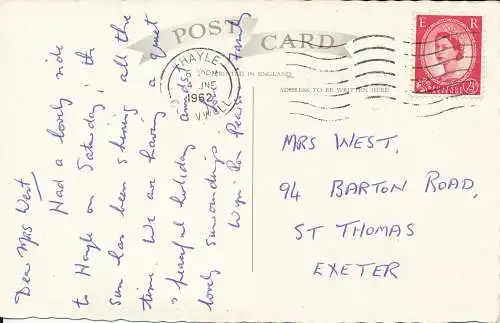 POST CARD
PRINTED IN ENGLAND
ADDRESS TO BE WRITTEN HERE
HAYLE
JNE
1962
E R
2½D
Dear Mrs West
Had a lovely ride
to Hayle on Saturday, the
sun has been shining all the
time. We are having a quiet
& peaceful holiday amidst
lovely surroundings
Wyn Ron Pearse & Family
MRS WEST,
94 BARTON ROAD,
ST THOMAS
EXETER